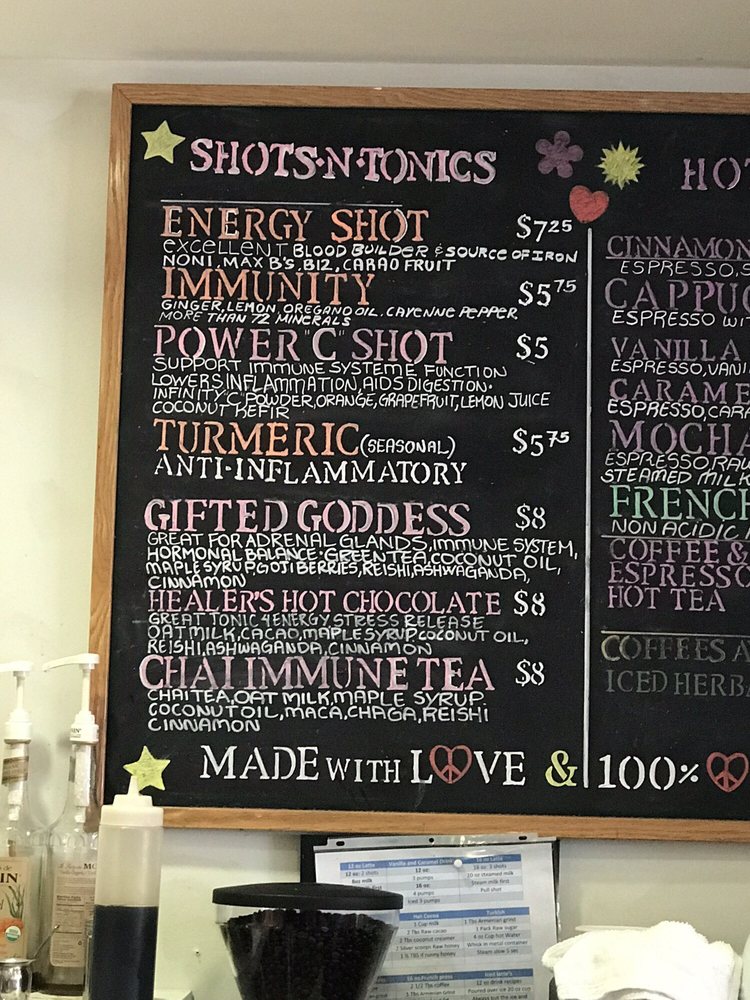 SHOTS·N·TONICS
ENERGY SHOT $7.25
EXCELLENT BLOOD BUILDER & SOURCE OF IRON
NONI, MAX B'S, B12, CARAO FRUIT
IMMUNITY $5.75
GINGER, LEMON, OREGANO OIL, CAYENNE PEPPER
MORE THAN 72 MINERALS
POWER "C" SHOT $5
SUPPORT IMMUNE SYSTEME FUNCTION
LOWERS INFLAMMATION, AIDS DIGESTION·
INFINITY C POWDER, ORANGE, GRAPEFRUIT, LEMON JUICE
COCONUT KEFIR
TURMERIC (SEASONAL) $5.75
ANTI-INFLAMMATORY
GIFTED GODDESS $8
GREAT FOR ADRENAL GLANDS, IMMUNE SYSTEM,
HORMONAL BALANCE· GREEN TEA, COCONUT OIL,
MAPLE SYRUP, GOJI BERRIES, REISHI, ASHWAGANDA,
CINNAMON
HEALER'S HOT CHOCOLATE $8
GREAT TONIC 4 ENERGY STRESS RELEASE
OAT MILK, CACAO, MAPLE SYRUP, COCONUT OIL,
REISHI, ASHWAGANDA, CINNAMON
CHAI IMMUNE TEA $8
CHAI TEA, OAT MILK, MAPLE SYRUP
COCONUT OIL, MACA, CHAGA, REISHI
CINNAMON
MADE WITH LOVE & 100%
HOT
CINNAMON
ESPRESSO, S
CAPPUC
ESPRESSO WIT
VANILLA
ESPRESSO, VANI
CARAME
ESPRESSO, CARA
MOCHA
ESPRESSO RAW
STEAMED MILK
FRENCH
NON ACIDIC
COFFEE &
ESPRESSO
HOT TEA
COFFEES A
ICED HERBA
12 oz Latte
12 oz: 2 shots
8oz milk
Vanilla and Caramel Drink
12 oz:
3 pumps
16 oz:
4 pumps
Iced 3 pumps
16 oz Latte
16 oz: 3 shots
10 oz steamed milk
Steam milk first
Pull shot
Hot Cocoa
1 Cup milk
2 Tbs Raw cacao
2 Tbs coconut creamer
2 Silver scoops Raw honey
Turkish
1 Tbs Armenian grind
1 Park Raw sugar
4 oz Cup hot Water
Whisk in metal container
Steam slow 5 sec
16 oz French press
2 1/2 Tbs coffee
1 Tbs Armenian Grind
Iced latte's
12 oz drink recipes
Poured over ice 20 oz cup